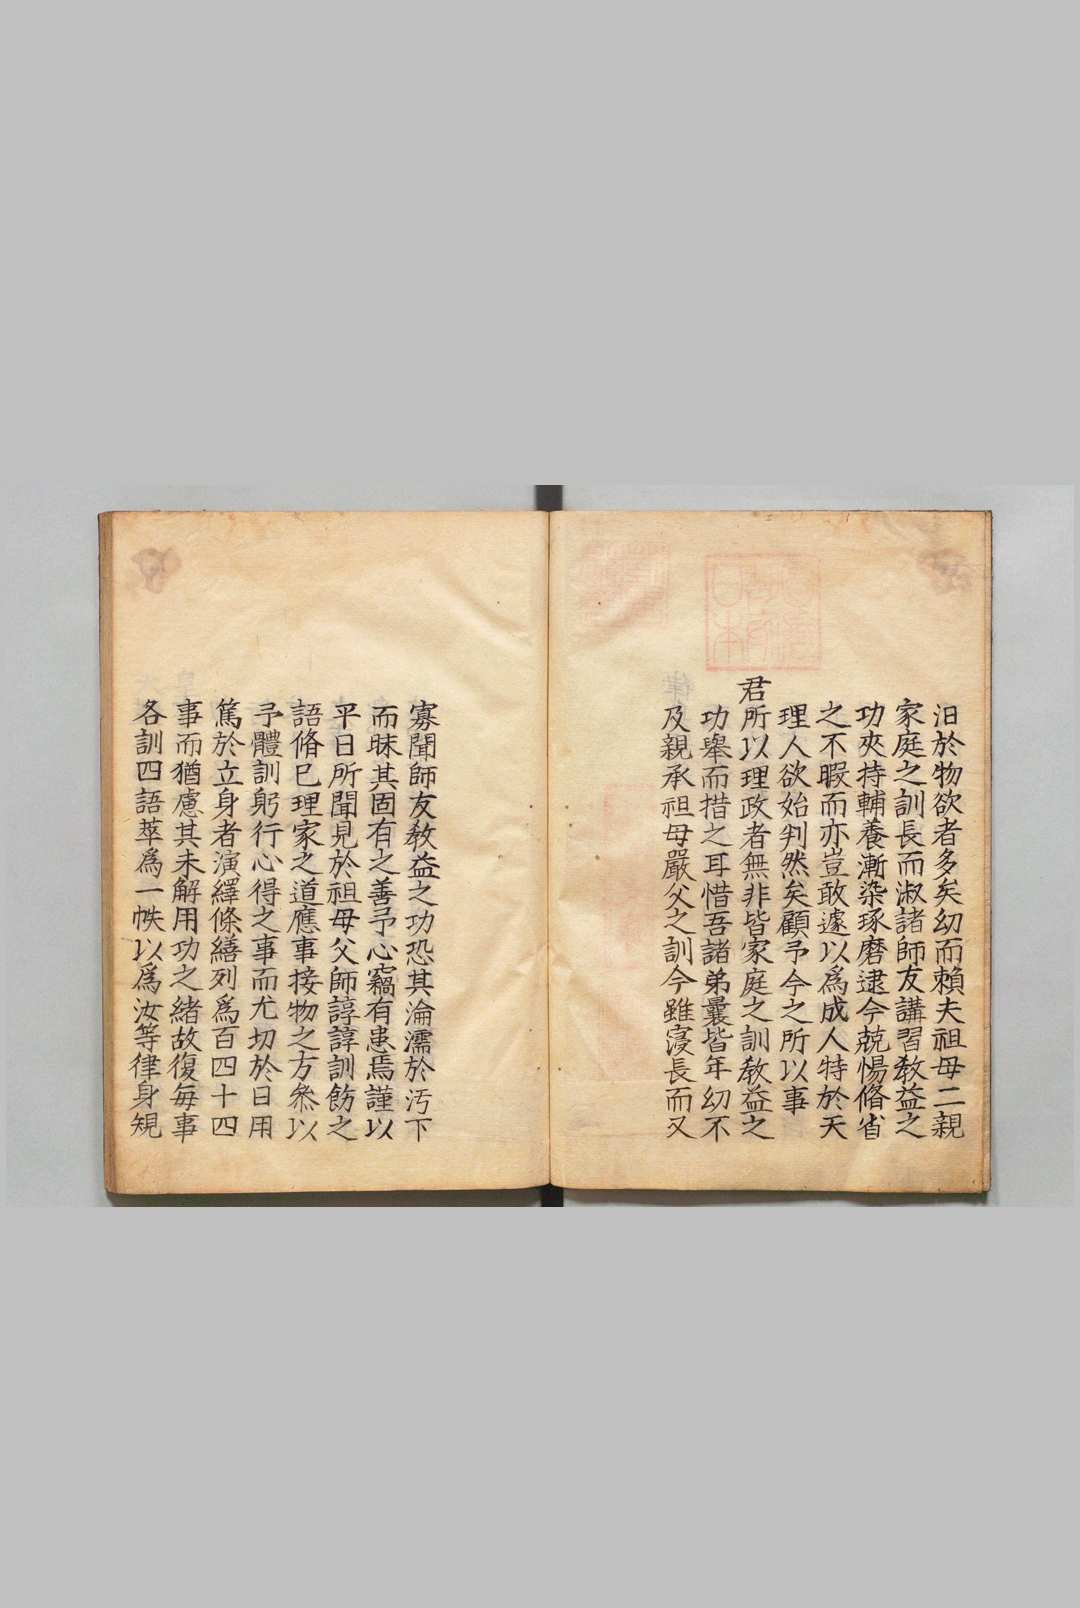 汩於物欲者多矣幼而賴夫祖母二親
家庭之訓長而淑諸師友講習教益之
功夾持輔養漸染琢磨逮今兢惕脩省
之不暇而亦豈敢遽以爲成人特於天
理人欲始判然矣顧予今之所以事
君所以理政者無非皆家庭之訓教益之
功舉而措之耳惜吾諸弟曩皆年幼不
及親承祖母嚴父之訓今雖寖長而又
寡聞師友教益之功恐其淪濡於汚下
而昧其固有之善予心竊有患焉謹以
平日所聞見於祖母父師諄諄訓飭之
語脩己理家之道應事接物之方叅以
予體訓躬行心得之事而尤切於日用
篤於立身者演繹條繕列爲百四十四
事而猶慮其未解用功之緒故復每事
各訓四語萃爲一帙以爲汝等律身䂓